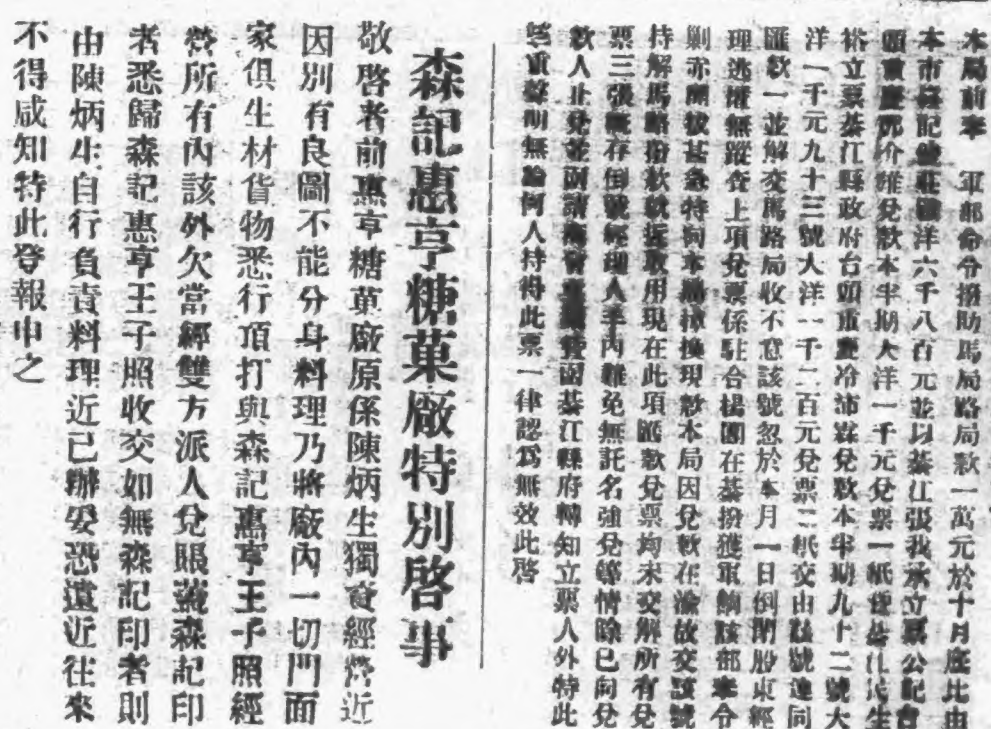 本局前奉　軍部命令撥助馬局路局款一萬元於十月底比由
本市 記 莊 洋六千八百元並以綦江張我承立票公記台
頭重慶鄧介維兌款本半期大洋一千元兌票一紙 綦江
裕立票綦江縣政府台頭重慶冷沛霖兌款本半期九十二號大
洋一千元九十三號大洋一千二百元兌票二紙交由該號連同
匯款一並解交馬路局收不意該號忽於本月一日倒閉股東經
理逃 無蹤查上項兌票係駐合楊團在綦撥獲軍餉該部奉令
剿赤 撥甚急特向本局掉換現款本局因兌款在渝故交該號
持解馬路 款就近取用現在此項匯款兌票均未交解所有兌
票三張 存倒號經理人手內難免無託名強兌等情除已向兌
款人止兌並函請 函綦江縣府轉知立票人外特此
鄭重聲明無論何人持得此票一律認爲無效此啓
森記惠亨糖菓廠特別啓事
敬啓者前惠亨糖菓廠原係陳炳生獨資經營近
因別有良圖不能分身料理乃將廠內一切門面
家俱生材貨物悉行頂打與森記惠亨王子照經
營所有內該外欠當經雙方派人兌賬蓋森記印
者悉歸森記惠亨王子照收交如無森記印者則
由陳炳生自行負責料理近已辦妥恐遠近往來
不得咸知特此登報申之